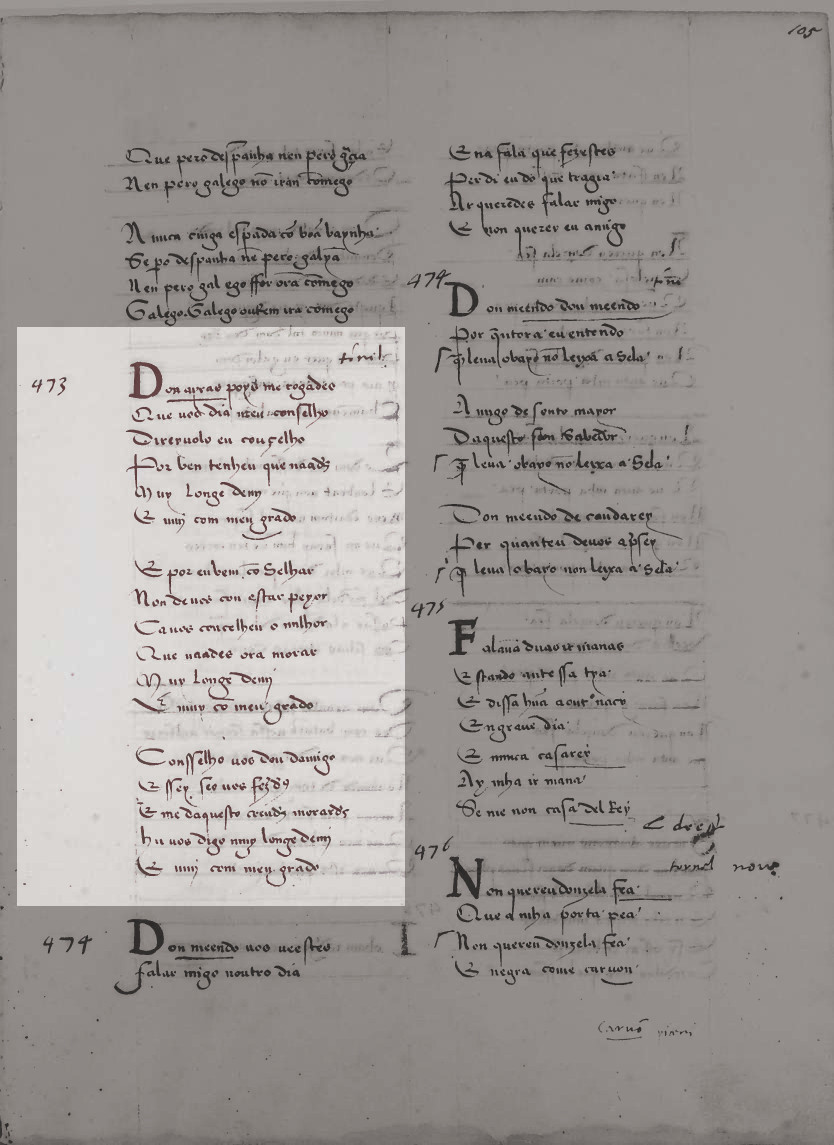 105
Que pero despanha nen pero gr̃cia
Nen pero galego nõ iran comego
A nuca cinga espada cõ boã baynha
Se p̃o despanha nẽ pero galyza
Nen pero gal ego ffor ora comego
Galego. Galego outrem ira comego
473
tornil
Don ayras poys me rogades
Que uos dia meu conselho
Direyuolo eu concelho
Por ben tenheu que uaads̃
Muy longe demj
E mui com meu grado
E por eu bem cõ Selhar
Non deuos con estar peyor
Ca uos conçelheu o milhor
Que uaades ora morar
Muy longe demj
E muy cõ meu grado
Consselho uos dou damigo
E ssey seo uos fezrd̃s
E me daquesto creud̃s morard̃s
hu uos digo muy longe demj
E mui com meu grado
474
Don meendo uos ueestes
falar migo noutro dia
E na fala que fezestes
Perdi eu do que tragia
Ar queredes falar migo
E non querer eu amigo
474
Don meendo don meendo
Por quitora eu entendo
q̃ leua o bayo nõ leyxa a Sela
Amigo de Souto mayor
Daquesto Son Sabedor
q̃ leua obayo nõ leixa a Sela
Don meendo de candarey
Per quanteu deuos apsey
q̃ leua o bayo non leixa a sela
475
Falauã duas irmanas
Estando ante ssa tya
E dissa hũa a outra nacy
En graue dia
E nunca casarey
Ay mha ir mana
Se me non casa del Rey
476
tornel
Non quereu donzela fea
Que a mha porta pea
Non quereu donzela fea
E negra come caruon
Caruõ